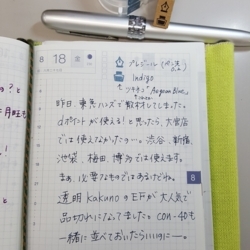 8 18 金
プレジール (ペン先)
Indigo
ツキネコ "Aegean Blue"
昨日、東急ハンズで散財してしまった。
dポイントが使える!と思ったら、大宮店
では使えなかったのー。渋谷、新宿、
池袋、梅田、博多では使えます。
まあ、必要なものではあるだね。
8
透明 kakunoのEFが大人気で
品切れになってました。CON-40も
一緒に並べておいたらいいのにー。